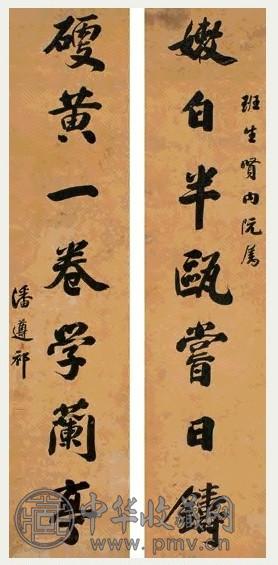 班生賢内阮属
嫩白半甌嘗日鑄
硬黄一卷学蘭亭
潘遵祁
中华收藏网
www.pmv.cn